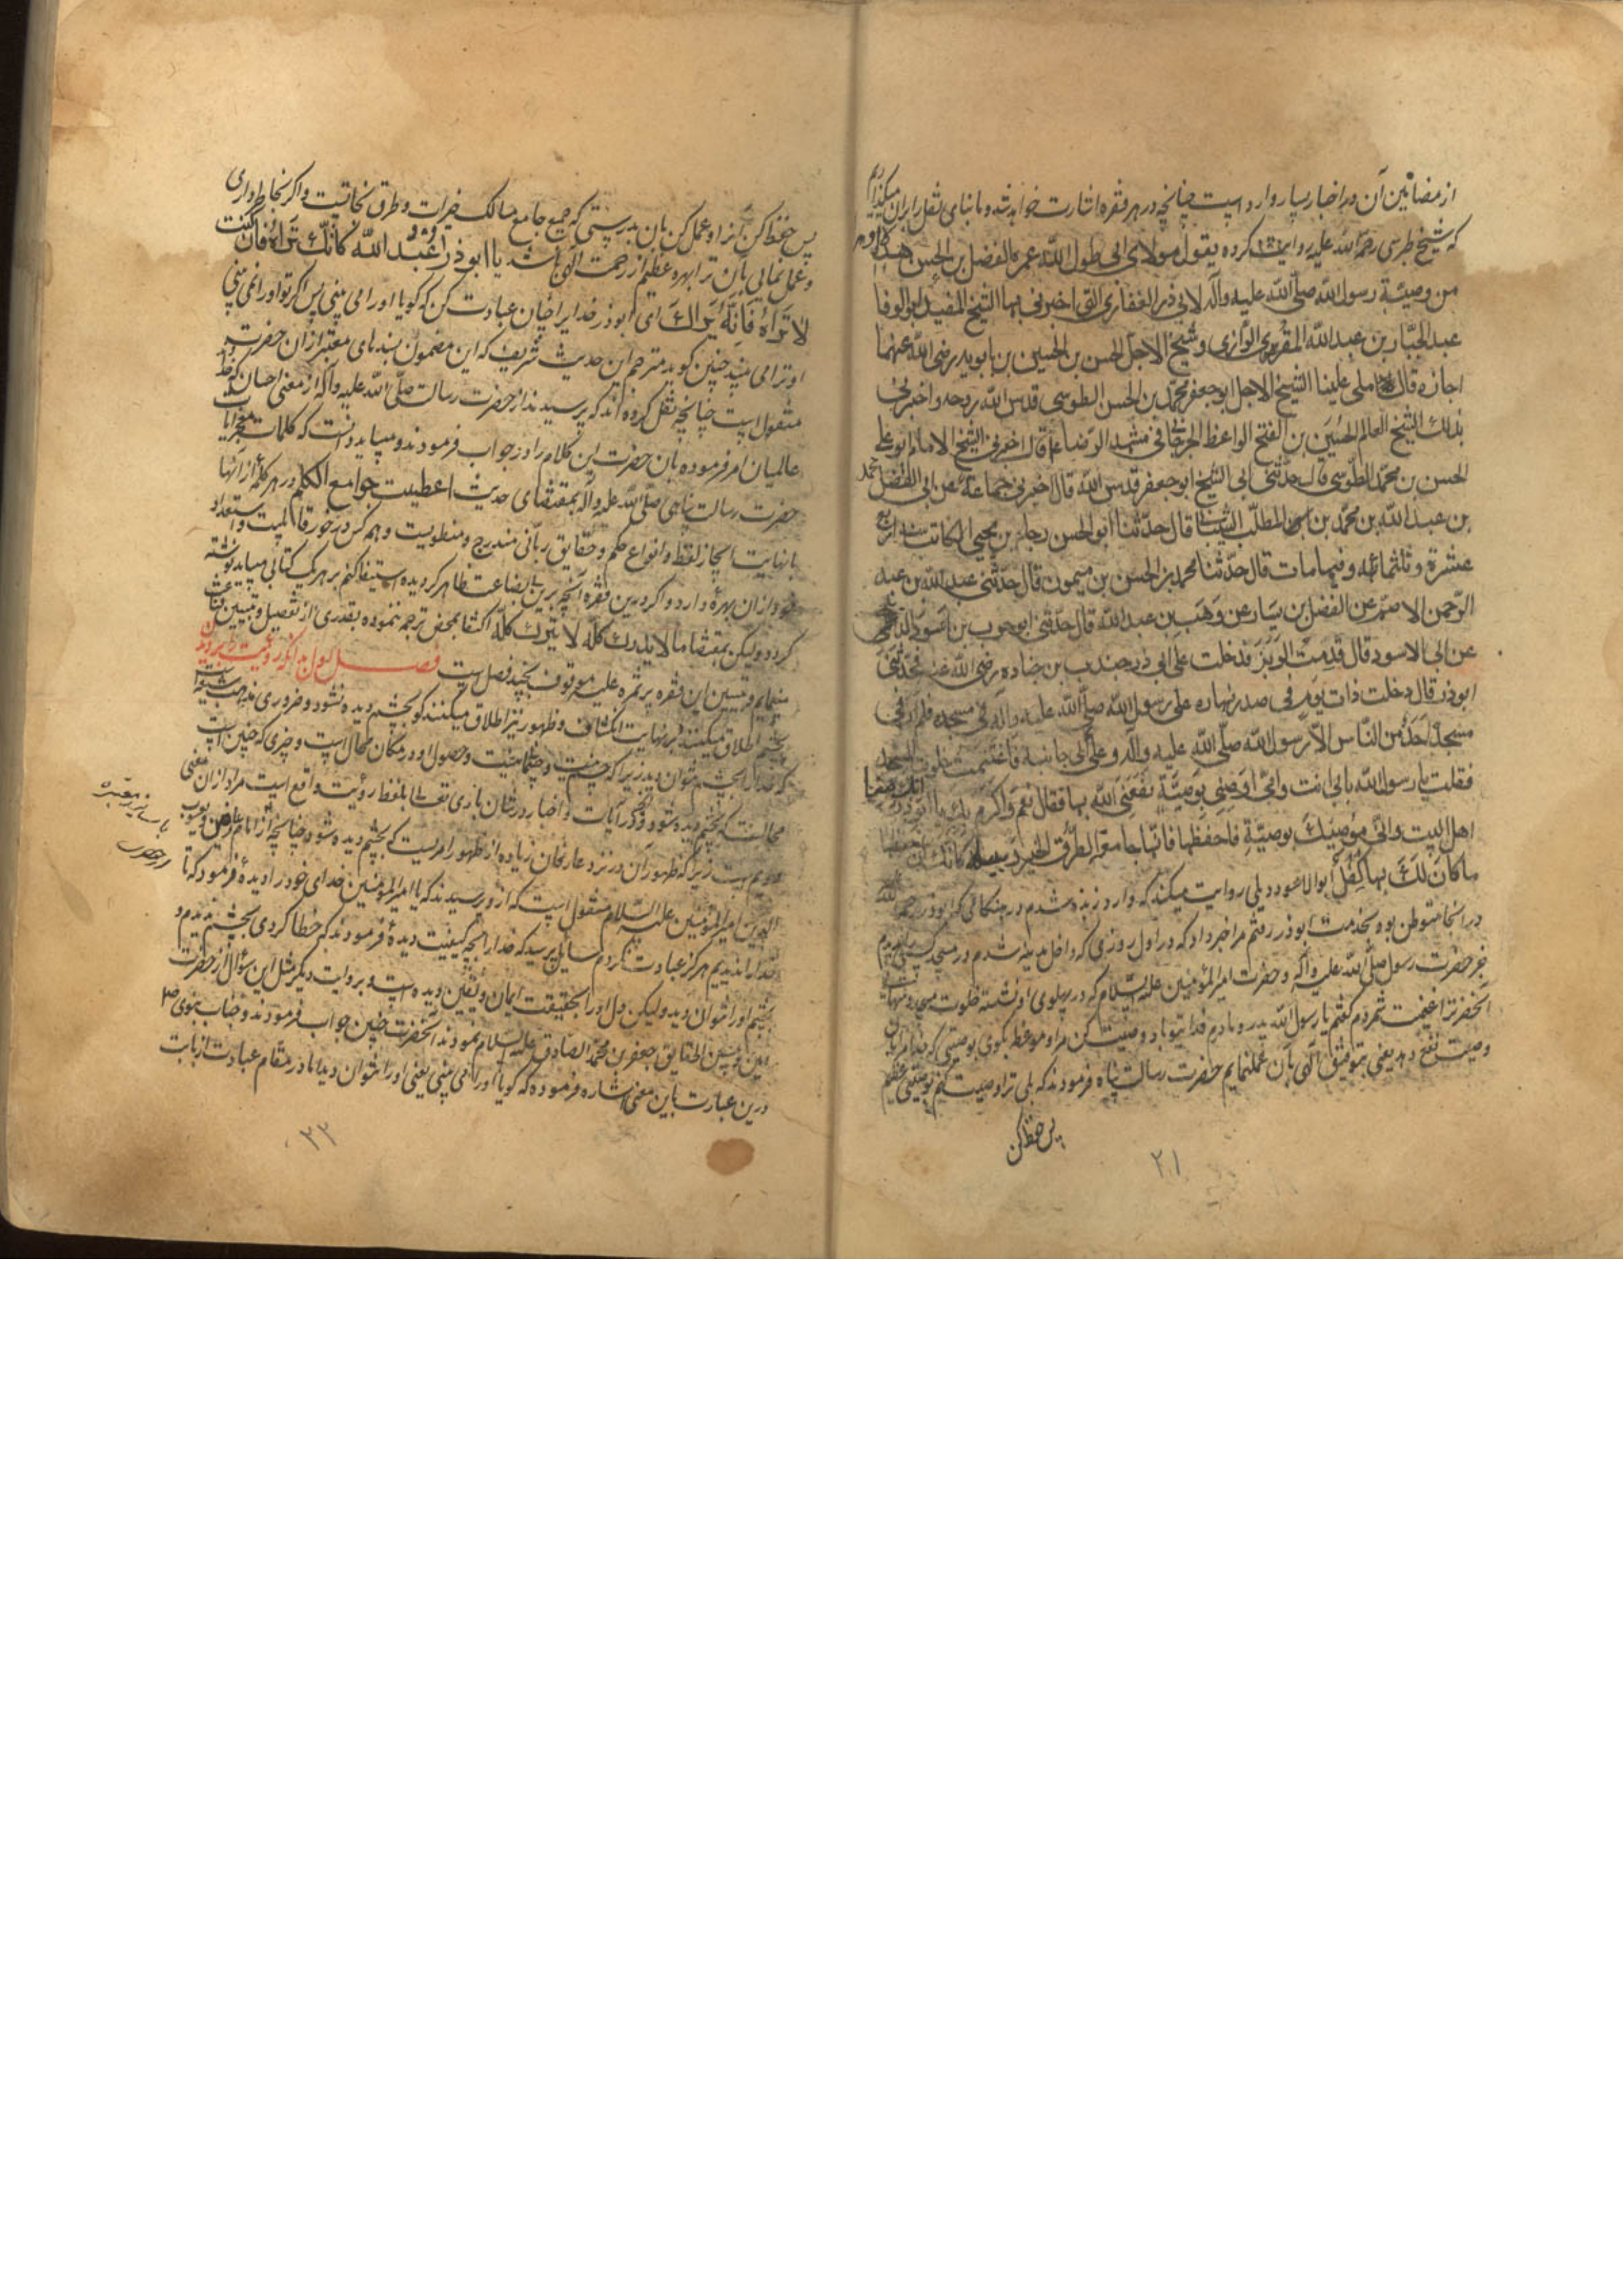 از مضامین آن در اخبار بسیار وارد است چنانچه در هر فقره اشارت خواهد شد و ما بنای نقل را بر آن میگذاریم
که شیخ طبرسی رحمة الله علیه روایت کرده یقول مولای ابی طول الله عمره الفضل بن الحسن هذه الاوراق
من وصیّة رسول الله صلّی الله علیه وآله لابی ذر الغفاری التی اخبرنی بها الشیخ المفید ابو الوفا
عبد الجبّار بن عبد الله المقری الرّازی و شیخ الاجلّ الحسن بن الحسین بن بابویه رضی الله عنهما
اجازة قال املی علینا الشیخ الاجل ابو جعفر محمّد بن الحسن الطوسی قدس الله روحه واخبرنی
بذلك الشیخ العالم الحسین بن الفتح الواعظ الجرجانی فی مشهد الرّضا ع قال اخبرنی الشیخ الامام ابو علی
الحسن بن محمّد الطّوسی قال حدّثنی ابی الشیخ ابو جعفر قدس الله قال اخبرنی جماعة عن ابی المفضل محمّد
بن عبد الله بن محمّد بن المطلّب الشیبانی قال حدّثنا ابو الحسن رجاء بن یحیی الکاتب سنة اربع
عشرة وثلثمائه وفیها مات قال حدّثنا محمد بن الحسن بن میمون قال حدّثنی عبد الله بن عبد
الرّحمن الاصمّ عن الفضل بن یسار عن وهب بن عبد الله قال حدّثنی ابو حرب بن اسود الدئلی
عن ابی الاسود قال قدمت الربذة فدخلت علی ابی ذر جندب بن جناده رضی الله عنه فحدّثنی
ابوذر قال دخلت ذات یوم فی صدر نهاره علی رسول الله صلّی الله علیه وآله فی مسجده فلم ار فی
مسجده احد من النّاس الّا رسول الله صلّی الله علیه وآله وعلی الی جانبه فاغتنمت خلوة المسجد
فقلت یا رسول الله بابی انت وامّی اوصنی بوصیّة ینفعنی الله بها فقال نعم واکرم بك یا اباذر انك منّا
اهل البیت وانّی موصیك بوصیّة فاحفظها فانها جامعة لطرق الخیر وسبله فانك ان حفظتها
ما کان لك بها کفل ابو الاسود دیلی روایت میکند که وارد ربذه شدم در هنگامی که ابوذر رحمه الله
در آنجا متوطن بود بخدمت ابوذر رفتم مرا خبر داد که در اول روزی که داخل مدینه شدم در مسجد کسی را ندیدم
جز حضرت رسول صلّی الله علیه وآله و حضرت امیر المؤمنین علیه السّلام که در پهلوی او نشسته خلوت مسجد و تنهائی
آنحضرت را غنیمت شمردم گفتم یا رسول الله پدر و مادرم فدای تو باد وصیت کن مرا و موعظه بگوی بوصیتی که خدا مرا بآن
وصیت نفع دهد یعنی بتوفیق الهی بآن عمل نمایم حضرت رسالت پناه فرمودند که بلی ترا وصیت کنم بوصیتی عظیم
پس حفظ کن
۲۱
پس حفظ کن آنرا و عمل کن بآن بدرستی که جمیع جامع مسالک خیرات و طرق نجاتیست و اگر بخاطر داری
و عمل نمائی بآن ترا بهره عظیم از رحمت الهی باشد یا ابوذر اعبد الله کانّك تراه فان کنت
لا تراه فانّه یراك ای ابوذر خدا را چنان عبادت کن که گویا او را می بینی پس اگر تو او را نمی بینی
او ترا می بیند چنین گوید مترجم این حدیث شریف که این مضمون بسندهای معتبر از آن حضرت
منقول است چنانچه نقل کرده اند که پرسیدند از حضرت رسالت صلّی الله علیه وآله از معنی احسان که خدا
عالمیان امر فرموده بآن حضرت این کلام را در جواب فرمودند و میباید دانست که کلمات معجز آیات
حضرت رسالت پناهی صلّی الله علیه وآله بمقتضای حدیث اعطیت جوامع الکلم در هر کلمه از آنها
با نهایت ایجاز لفظ و انواع حکم و حقایق ربّانی مندرج و منطویست و هر کس در خور قابلیت و استعداد
خود از آن بهره دارد و اگر درین فقره آنچه برین بی بضاعت ظاهر گردیده استیفا کنم بر هر یک کتابی میباید نوشته
گردد ولیکن بمقتضا ما لا یدرك کلّه لا یترك کلّه اکتفا بمحض ترجمه ننموده بقدری از تفصیل و تبیین قناعت
مینمایم و تبیین این فقره پرثمره علیه موقوف بچند فصلست فصل اول بدانکه رؤیت را بر دیدن
بچشم اطلاق میکنند و بر نهایت انکشاف و ظهور نیز اطلاق میکنند گو بچشم دیده نشود و ضروری مذهب شیعه است
که خدا را بچشم نتوان دید زیرا که جسم نیست و حصول او در مکان محال است و چیزی که چنین است
محالست که بچشم دیده شود و آنکه در آیات و اخبار در شان باری تعالی لفظ رؤیت واقع است مراد از آن معنی
دویم است زیرا که ظهور آن در نزد عارفان زیاده از ظهور امریست که بچشم دیده شود چنانچه از امام عارفین و یعسوب
الدین امیر المؤمنین علیه السّلام منقول است که از او پرسیدند که یا امیر المؤمنین خدای خود را دیده فرمود که تا
خدا را ندیدیم هرگز عبادت نکردم سایل پرسید که خدا را بچه کیفیت دیده فرمودند که خطا کردی بچشم ندیدم و
بچشم او را نتوان دید ولیکن دل او را بحقیقت ایمان و یقین دیده است و بروایت دیگر مثل این سؤال از حضرت
مبین الحقایق جعفر بن محمّد الصادق علیه السلام نمودند آنحضرت چنین جواب فرمودند و جناب نبوی ص
درین عبارت باین معنی اشاره فرموده که گویا او را می بینی یعنی او را نتوان دید اما در مقام عبادت از بابت
۲۲